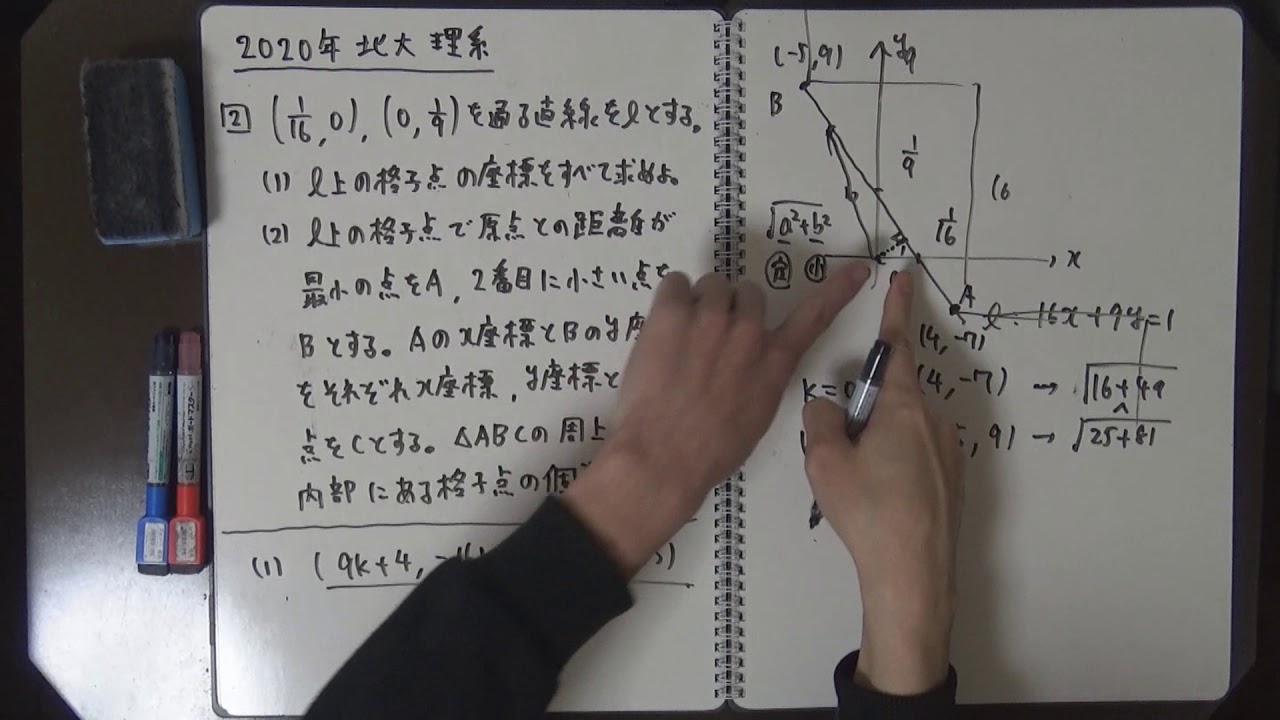 2020年 北大 理系
2 (1/16, 0), (0, 1/9)を通る直線をℓとする。
(1) ℓ上の格子点の座標をすべて求めよ。
(2) ℓ上の格子点で原点との距離が
最小の点をA, 2番目に小さい点を
Bとする。Aのx座標とBのy座
をそれぞれx座標, y座標と
点をCとする。△ABCの周上
内部にある格子点の個
(1) (9k+4, -1
(-5, 9)
y
B
1/9
16
1/16
√a²+b²
小
x
A
ℓ: 16x+9y=1
(4, -7)
k=0 (4, -7) → √16+49
^
, 9) → √25+81